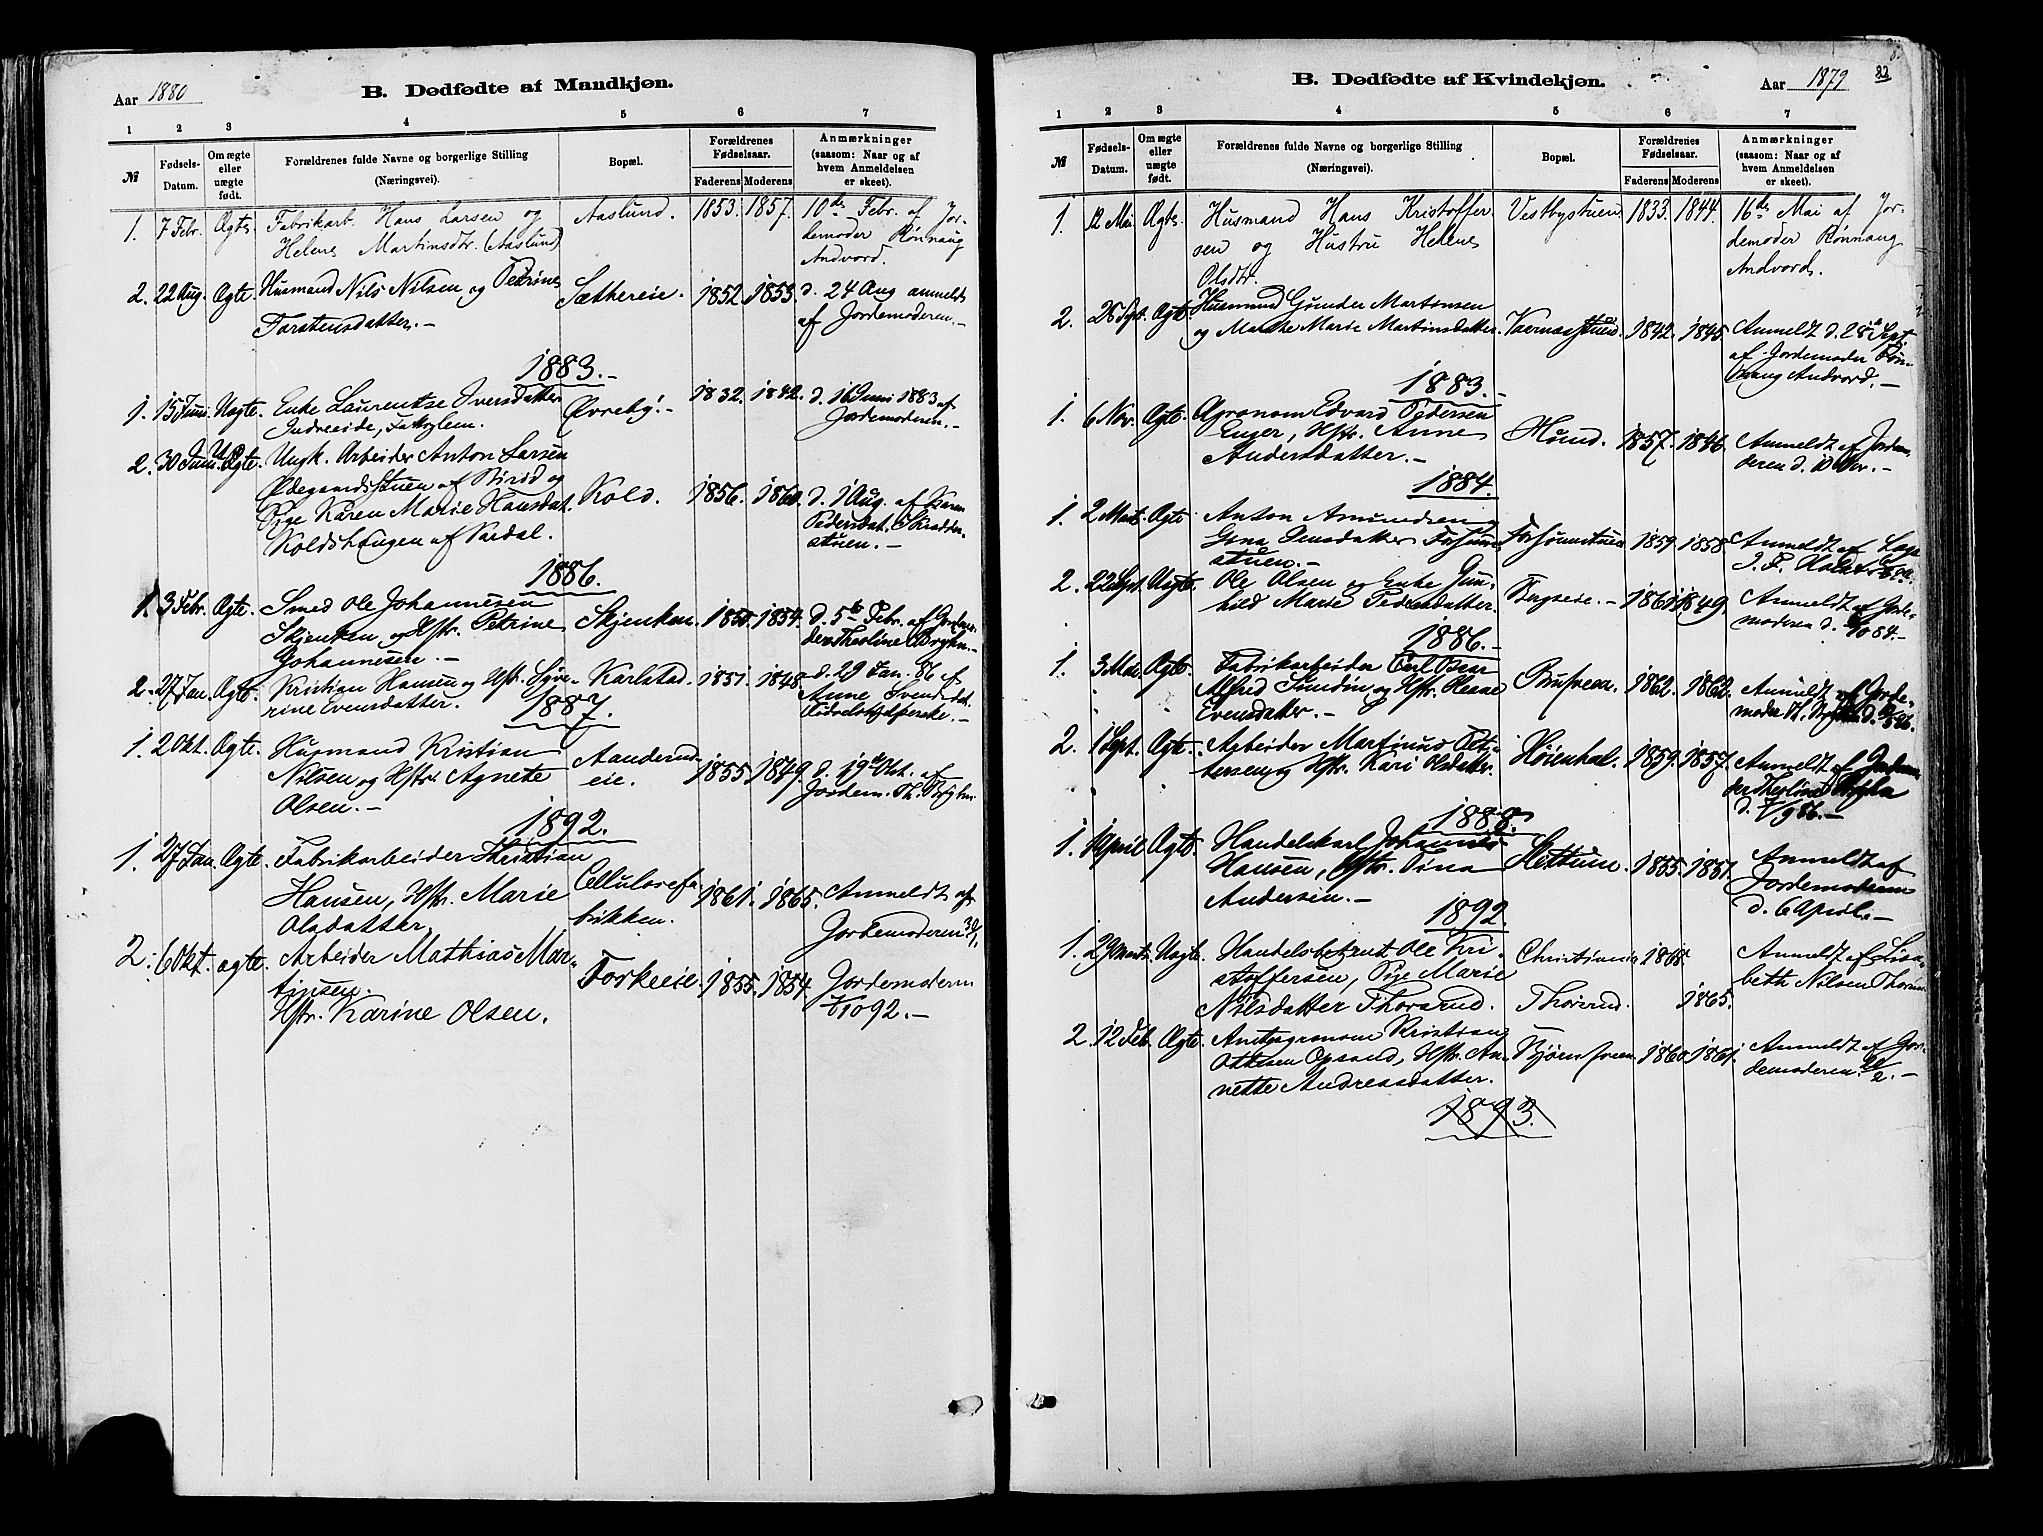 Aar 1880
B. Dødfødte af Mandkjøn.
1 2 3 4 5 6 7
№
Fødsels-Datum.
Om ægte eller uægte født.
Forældrenes fulde Navne og borgerlige Stilling
(Næringsvei).
Bopæl.
Forældrenes Fødselsaar.
Faderens Moderens
Anmærkninger
(saasom: Naar og af
hvem Anmeldelsen
er skeet).
1. 7 Febr. Ægte Fabrikarb. Hans Larsen og Aaslund. 1853. 1857. 10de Febr. af Jor-
Helene Martinsdtr. (Aaslund) demoder Rønnaug
Andvord.
2. 22 Aug. Ægte. Husmand Nils Nilsen og Petrine Sæthereie. 1852. 1853. d. 24 Aug anmeldt
Torstensdatter.- af Jordemoderen.-
1883.-
1. 15 Juni. Uægte. Enke Laurentse Iversdatter Øvreby.- 1832. 1842. d. 16 Juni 1883 af
Indreeide, Jordemoderen.-
2. 30 Juni. Uægte. Ungk. Arbeider Anton Larsen
Ødegaardsstuen af Birid og Kold. 1856. 1860. d. 1 Aug. af Karen
Pige Karen Marie Hansdat. Pedersdat.
Koldshaugen af Vardal. stuen.-
1886.
1. 3 Febr. Ægte. Smed Ole Johannesen Skjenken 1850. 1854. d. 5te Febr. af Jordemo-
Skjenken, og Hstr. Petrine der Theoline Bryhn.-
Johannesen.-
2. 27 Jan. Ægte Kristian Hansen og Hstr. Syve- Karlstad. 1851. 1848. d. 29 Jan. 86 af
rine Evensdatter. Anne Svendsdat.
1887.
1. 2 Okt. Ægte. Husmand Kristian Aanderud- 1855. 1849. d. 19de Okt. af
Nilsen og Hstr. Agnete eie. Jordem. Th. Bryhn
Olsen.-
1892.
1. 27 Jan. Ægte. Fabrikarbeider Christian
Hansen, Hstr. Marie Cellulosefa- 1861. 1865. Anmeldt af
Olsdatter, brikken. Jordemoderen 30/1
2. 6 Okt. ægte. Arbeider Mathias Mar- Torkeeie. 1855. 1854. Jordemoderen
tinsen. 7/10 92.-
Hstr. Karine Olsen.
B. Dødfødte af Kvindekjøn.
Aar 1879
82
1 2 3 4 5 6 7
№
Fødsels-Datum.
Om ægte eller uægte født.
Forældrenes fulde Navne og borgerlige Stilling
(Næringsvei).
Bopæl.
Forældrenes Fødselsaar.
Faderens Moderens
Anmærkninger
(saasom: Naar og af
hvem Anmeldelsen
er skeet).
1. 12 Mai. Ægte. Husmand Hans Kristoffer- Vestbystuen 1833. 1844. 16de Mai af Jor-
sen og Hustru Helene demoder Rønnaug
Olsdtr. Andvord.
2. 28 Sept. Ægte. Husmand Gunder Martinsen
og Marthe Marie Martinsdatter 1842. 1845. Anmeldt d. 28de Sept.
af Jordemoder Røn-
naug Andvord.-
1883.-
1. 6 Nov. Ægte. Agronom Edvard Pedersen
Enger, Hstr. Anne Hund. 1857. 1846. Anmeldt af Jordemo-
Andersdatter.- deren d. 10 Nov.-
1884.
1. 2 Marts. Ægte Anton Amundsen
Gina Jensdatter Forsunds- Forsundstuen 1859. 1858. Anmeldt af Læge
stuen.-
2. 22 Sept. Uægte. Ole Olsen og Enke Gun- Bergseie.- 1861. 1849. Anmeldt af Jorde-
hild Marie Pedersdatter. moderen d. 5/10 84.-
1886.-
1. 3 Mai. Ægte. Fabrikarbeider Carl Oscar
Alfred Sundin og Hstr. 1862. 1862. Anmeldt af Jorde-
Evensdatter.- moder Th. Bryhn d.
2. 1 Sept. Ægte. Arbeider Martinus Pet- Høienhal. 1859. 1857. Anmeldt af Jordemo-
tersen og Hstr. Kari Olsdatter. der Theoline Bryhn
d. 7/9 86.-
1888.
1. 1 April Ægte. Handelskarl Johannes
Hansen, Hstr. Tina Slettum. 1855. 1851. Anmeldt af
Andersen.- Jordemoderen
d. 6 April.-
1892
1. 29 Marts. Uægte. Handelsbetjent Ole Kri- Christiania 1868. Anmeldt af Lisa-
stoffersen, Pige Marie beth Nilsen Thorsrud
Nilsdatter Thorsrud. Thorsrud. 1865.
2. 12 Feb. Ægte. Amtsagronom Kristian
Ottesen Opsand, Hstr. An- 1860. 1861. Anmeldt af Jor-
nette Andreasdatter. demoderen.
1893.